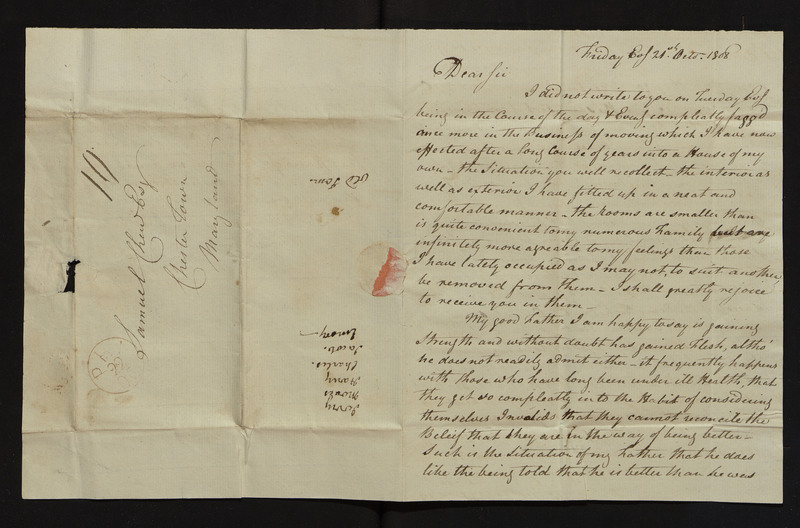 19
Samuel Chew Esqr
Chester Town
Maryland
Old Town
Jerry
Moses
Harry
Charles.
Jacob.
Friday Evg 21st Octo. 1808
Dear Sir
I did not write to you on Tuesday Evg
being in the Course of the day & Eveng compleatly faggd
once more in the Business of moving which I have now
effected after a long Course of years into a House of my
own – the Situation you will recollect – the interior as
well as exterior I have fitted up in a neat and
comfortable manner – the Rooms are smaller than
is quite convenient to my numerous Family but are
infinitely more agreable to my feelings than those
I have lately occupied as I may not, to suit another,
be removed from them – I shall greatly rejoice
to receive you in them –
My good Father I am happy to say is gaining
Strength and without doubt has gained Flesh, altho'
he does not readily admit either – it frequently happens
with those who have long been under ill Health, that
they get so compleatly in to the Habit of considering
themselves Invalids that they cannot reconcile the
Belief that they are in the way of being better –
Such is the Situation of my Father that he does
like the being told that he is better than he was